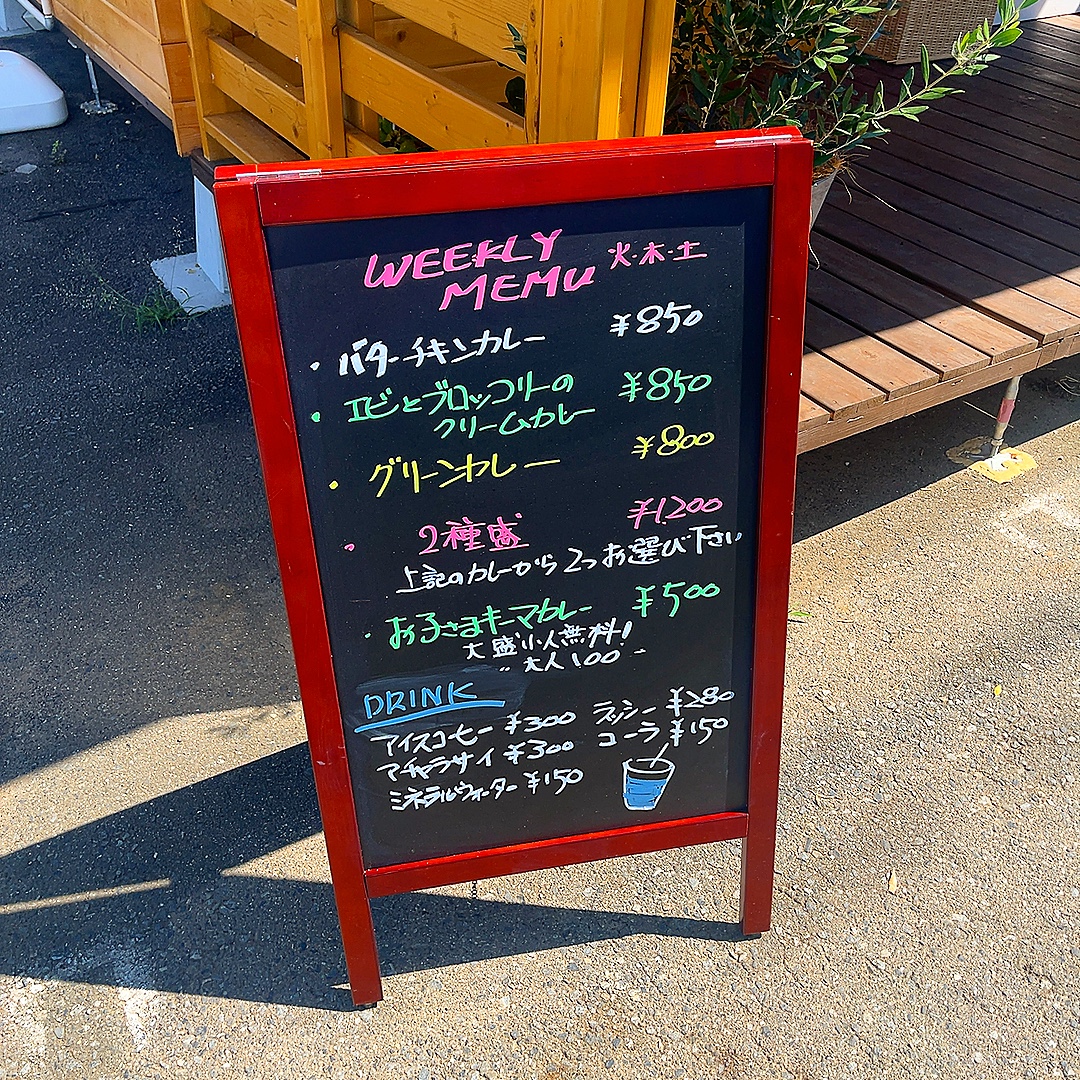 WEEKLY 火・木・土
MEMU
・バターチキンカレー ¥850
・エビとブロッコリーの ¥850
クリームカレー
・グリーンカレー ¥800
・2種盛 ¥1.200
上記のカレーから2つお選び下さい
・お子さまキーマカレー ¥500
大盛小人無料!
〃 大人100 〃
DRINK
アイスコーヒー ¥300 ラッシー ¥280
アチャラサイ ¥300 コーラ ¥150
ミネラルウォーター ¥150